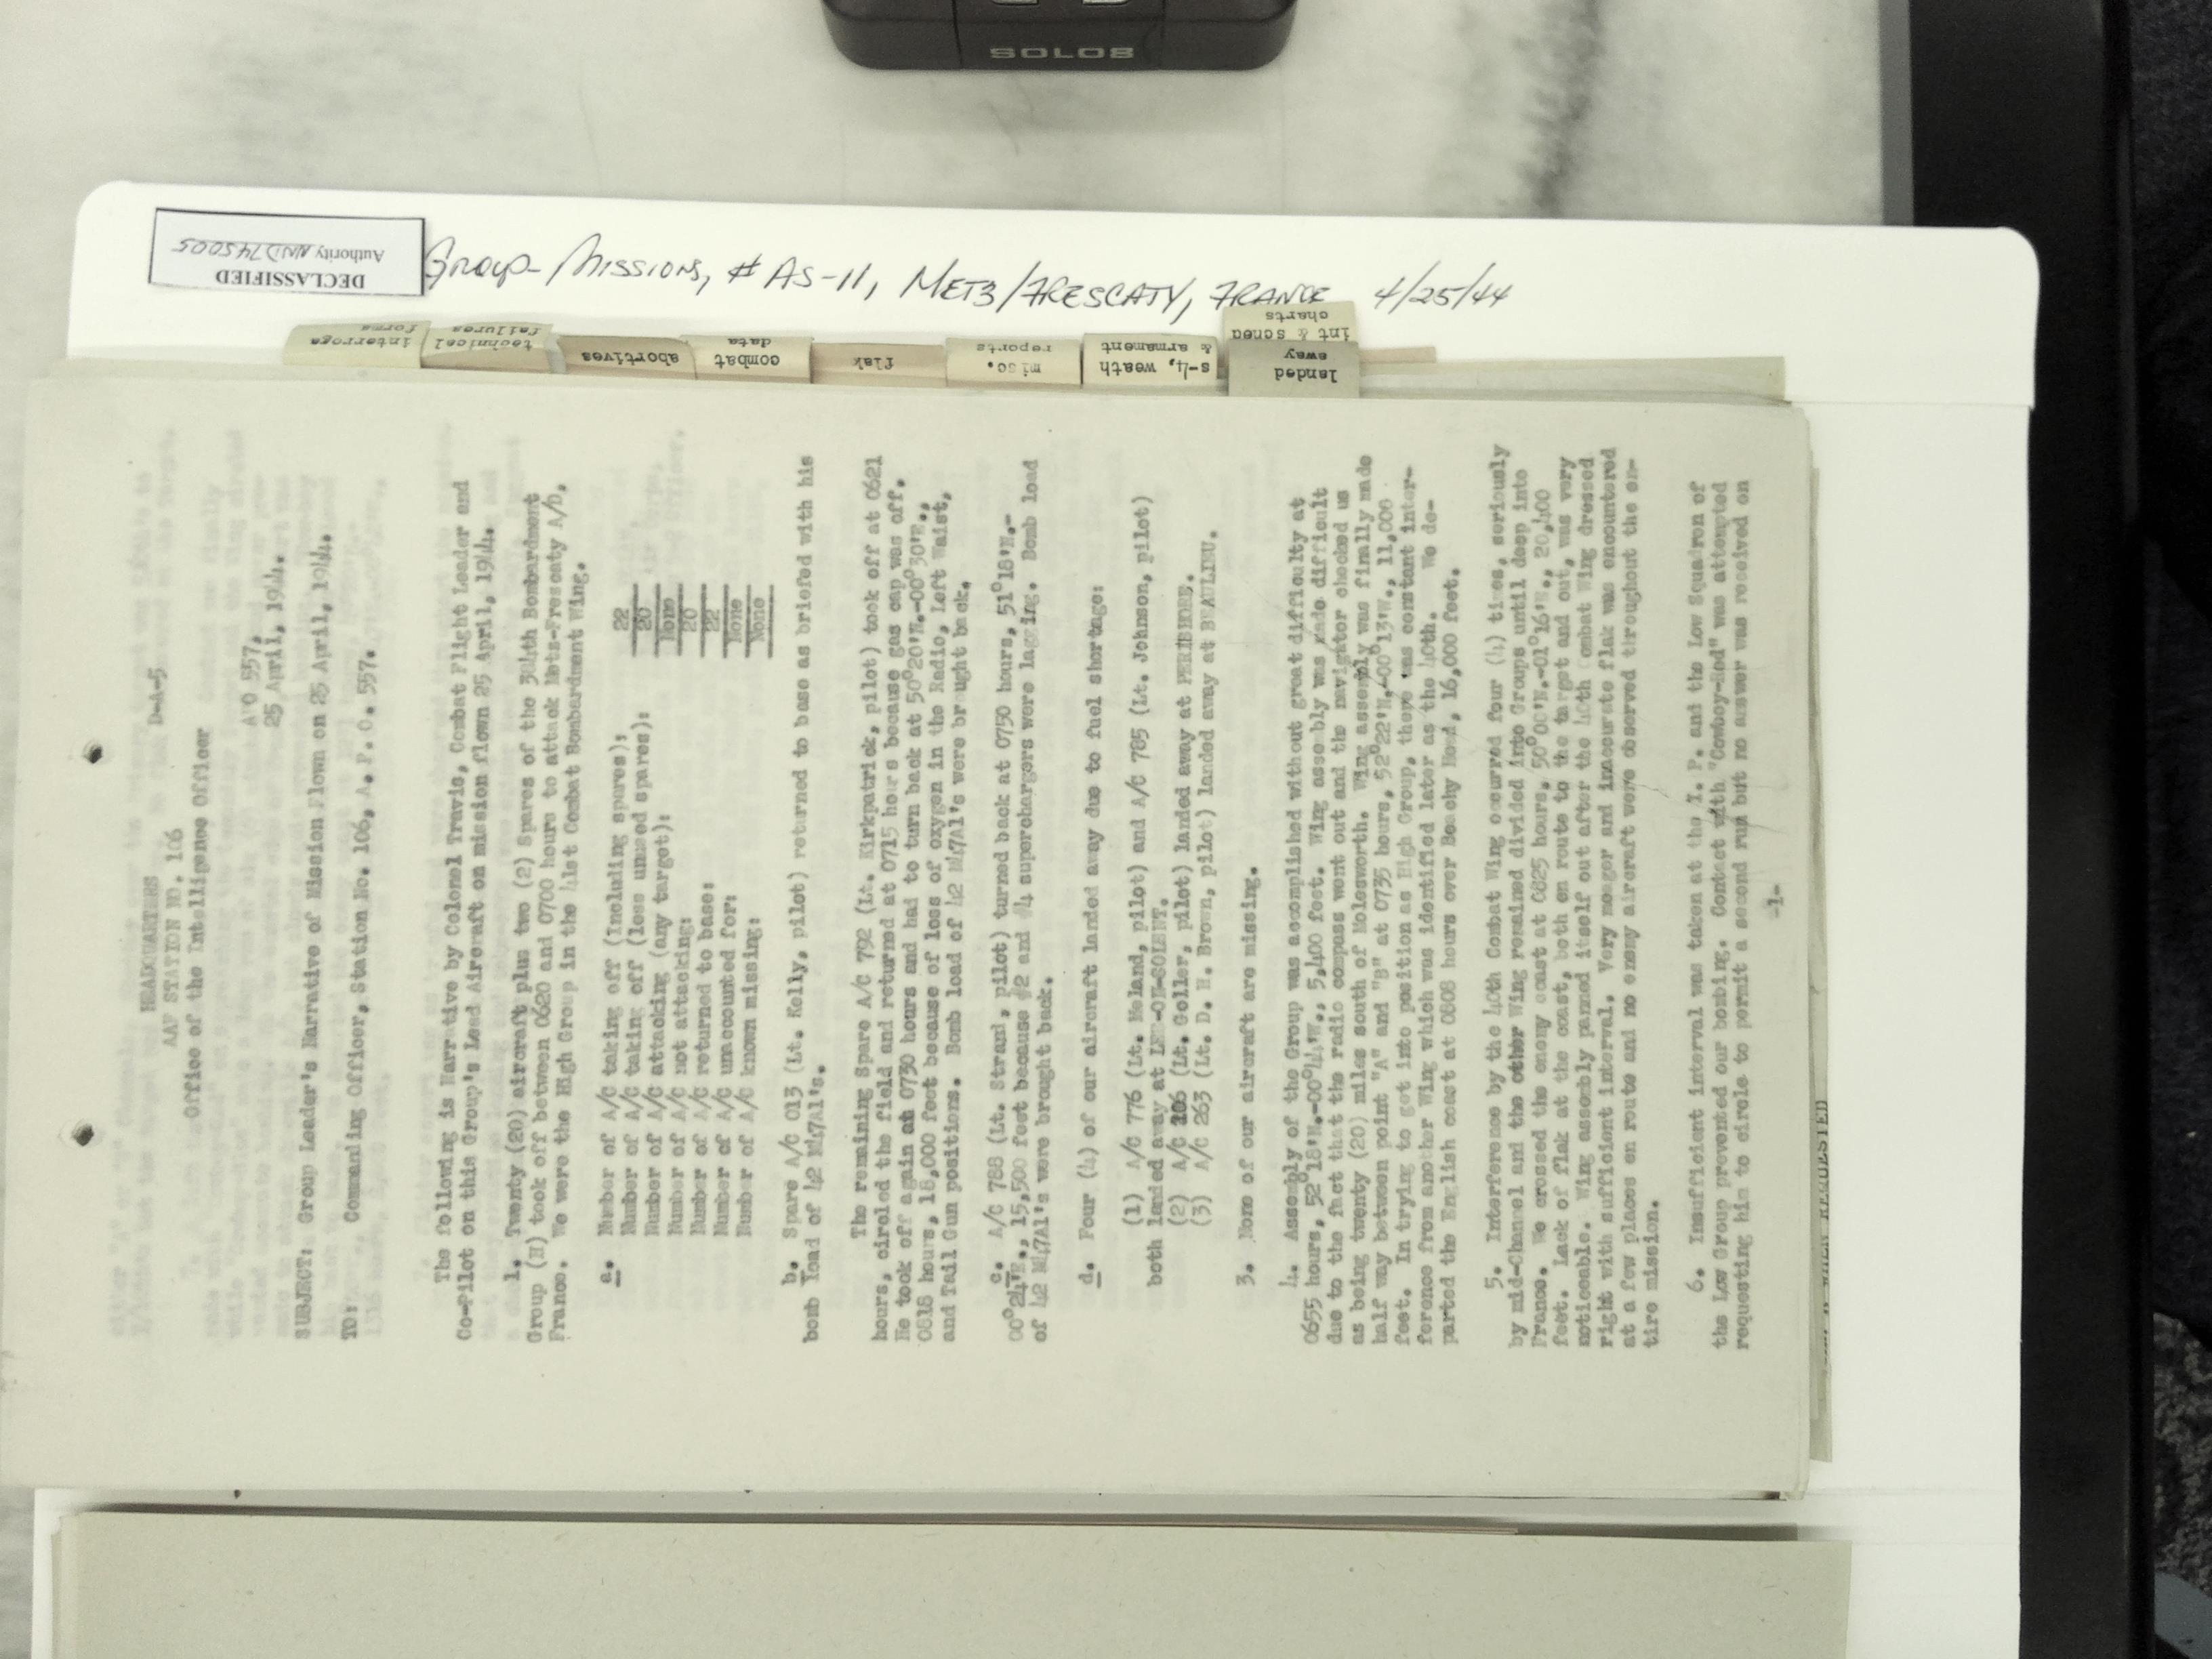 SOLO8
DECLASSIFIED
Authority NND 745005
Group-Missions, # AS-11, METZ/FRESCATY, FRANCE 4/25/44
interroga
forms
technical
failures
abortives
combat
data
flak
misc.
reports
s-4, weath
& armament
int & sched
charts
landed
away
HEADQUARTERS D-A-5
AAF STATION NO. 106
Office of the Intelligence Officer
APO 557,
25 April, 1944.
SUBJECT: Group Leader's Narrative of Mission Flown on 25 April, 1944.
TO: Commanding Officer, Station No. 106, A. P. O. 557.
The following is Narrative by Colonel Travis, Combat Flight Leader and
Co-Pilot on this Group's Lead Aircraft on mission flown 25 April, 1944.
1. Twenty (20) aircraft plus two (2) Spares of the 384th Bombardment
Group (H) took off between 0620 and 0700 hours to attack Metz-Frescaty A/D,
France. We were the High Group in the 41st Combat Bombardment Wing.
a. Number of A/C taking off (Including spares): 22
Number of A/C taking off (less unused spares): 20
Number of A/C attacking (any target): None
Number of A/C not attacking: 20
Number of A/C returned to base: 22
Number of A/C unaccounted for: None
Number of A/C known missing: None
b. Spare A/C 013 (Lt. Kelly, pilot) returned to base as briefed with his
bomb load of 42 M47A1's.
The remaining Spare A/C 792 (Lt. Kirkpatrick, pilot) took off at 0621
hours, circled the field and returned at 0715 hours because gas cap was off.
He took off again at 0730 hours and had to turn back at 50°20'N.-00°30'E.,
0818 hours, 18,000 feet because of loss of oxygen in the Radio, Left Waist,
and Tail Gun positions. Bomb load of 42 M47A1's were brought back.
c. A/C 788 (Lt. Strand, pilot) turned back at 0750 hours, 51°18'N.-
00°24'E., 15,500 feet because #2 and #4 superchargers were lagging. Bomb load
of 42 M47A1's were brought back.
d. Four (4) of our aircraft landed away due to fuel shortage:
(1) A/C 776 (Lt. Heland, pilot) and A/C 785 (Lt. Johnson, pilot)
both landed away at LEE-ON-SOLENT.
(2) A/C 106 (Lt. Goller, pilot) landed away at
(3) A/C 263 (Lt. D. H. Brown, pilot) landed away at BEAULIEU.
3. None of our aircraft are missing.
4. Assembly of the Group was accomplished without great difficulty at
0655 hours, 52°18'N.-00°44'W., 5,400 feet. Wing assembly was made difficult
due to the fact that the radio compass went out and the navigator checked us
as being twenty (20) miles south of Molesworth. Wing assembly was finally made
half way between point "A" and "B" at 0735 hours, 52°22'N.-00°13'W., 11,000
feet. In trying to get into position as High Group, there was constant inter-
ference from another Wing which was identified later as the 40th. We de-
parted the English coast at 0808 hours over Beachy Head, 16,000 feet.
5. Interference by the 40th Combat Wing occurred four (4) times, seriously
by mid-Channel and the other Wing remained divided into Groups until deep into
France. We crossed the enemy coast at 0825 hours, 50°00'N.-01°16'E., 20,400
feet. Lack of flak at the coast, both en route to the target and out, was very
noticeable. Wing assembly panned itself out after the 40th Combat Wing dressed
right with sufficient interval. Very meager and inaccurate flak was encountered
at a few places en route and no enemy aircraft were observed throughout the en-
tire mission.
6. Insufficient interval was taken at the I. P. and the Low Squadron of
the Low Group prevented our bombing. Contact with "Cowboy-Red" was attempted
requesting him to circle to permit a second run but no answer was received on
-1-